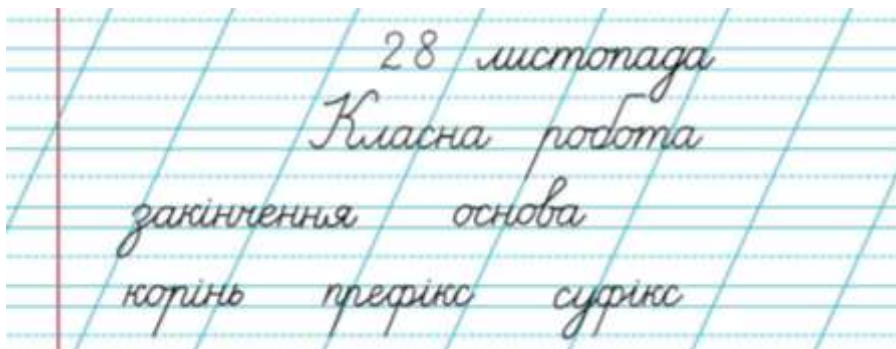 28 листопада
Класна робота
закінчення основа
корінь префікс суфікс